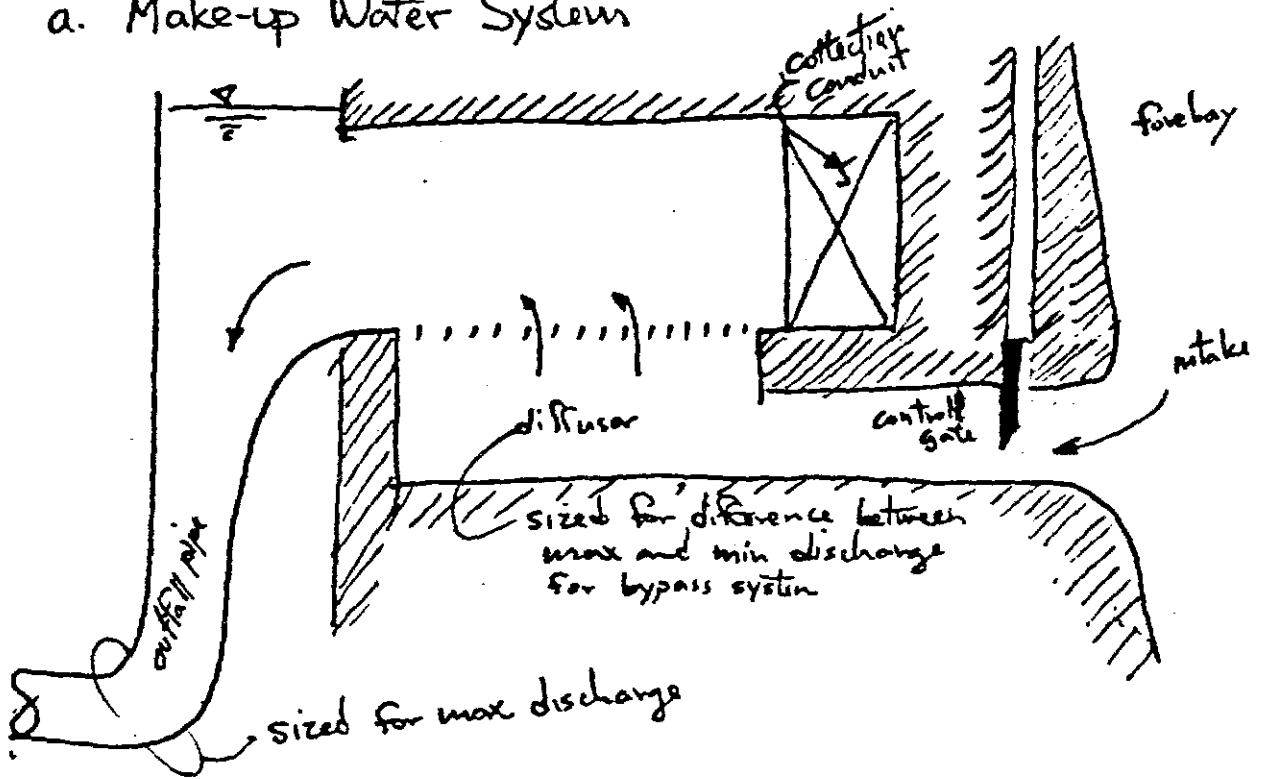 a. Make-up Water System
collection
conduit
forebay
intake
control
gate
diffusor
sized for difference between
max and min discharge
for bypass system
outfall pipe
sized for max discharge